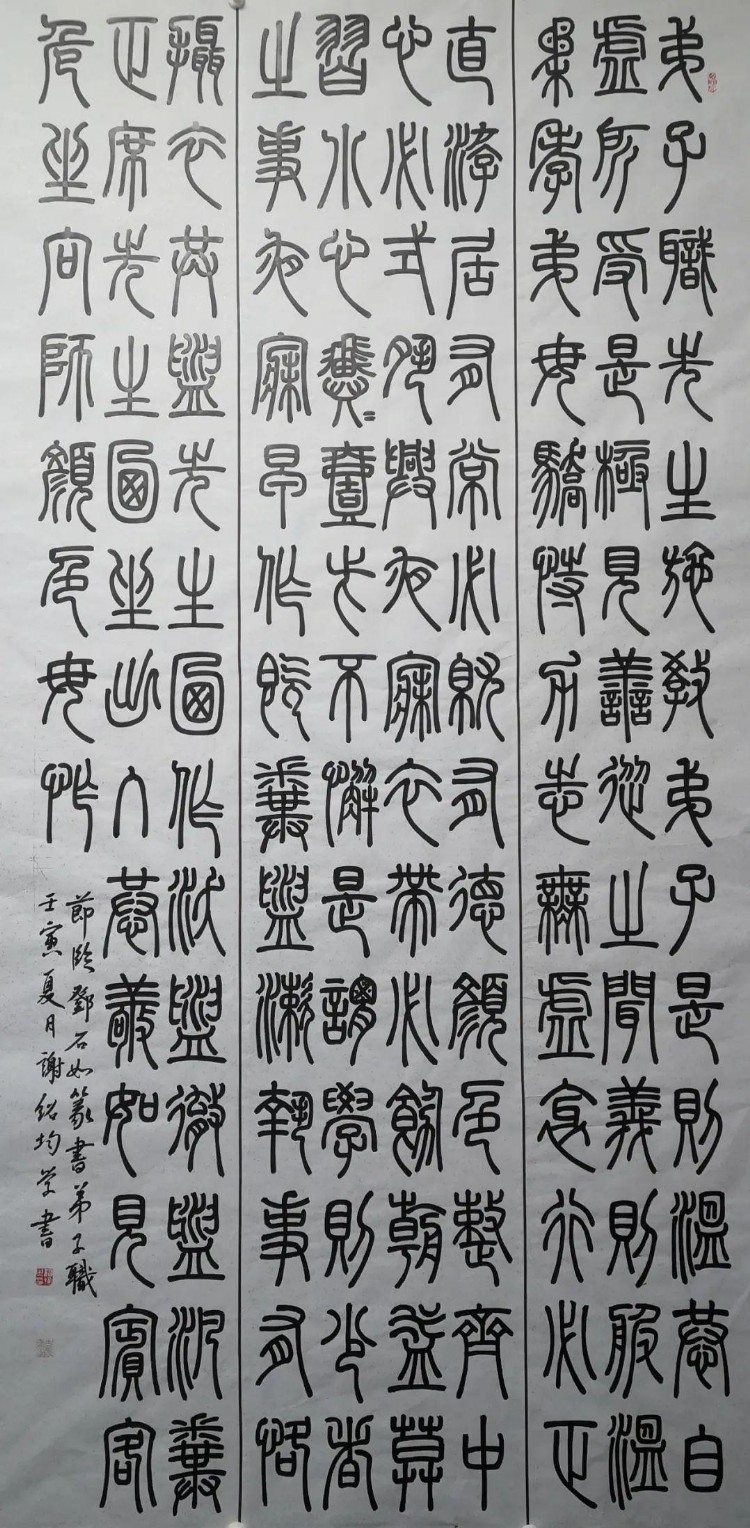 弟子職先生施教弟子是則溫恭自
虛所受是極見善從之聞義則服溫
柔孝弟毋驕恃力志無虛邪行必正
直游居有常必就有德顏色整齊中
心必式夙興夜寐衣帶必飭朝益莫
習小心翼〻壹此不懈是謂學則少者
之事夜寐早作既糞盥漱執事有恪
攝衣共盥先生迺作沃盥徹盥汎糞
正席先生迺坐出入恭敬如見賓客
危坐向師顏色毋怍
節臨鄧石如篆書弟子職
壬寅夏月謝紹均学書